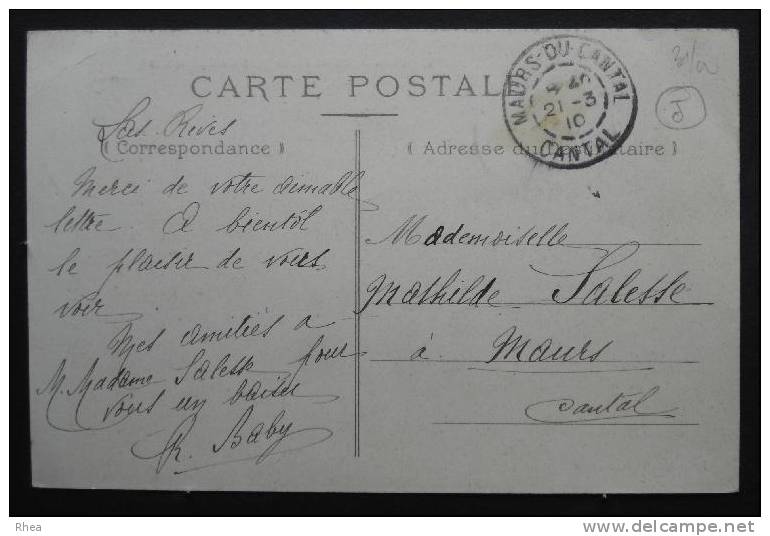 CARTE POSTAL
MAURS-DU-CANTAL
21-3
10
CANTAL
J
Las Rives
(Correspondance)
(Adresse du taire)
Merci de votre aimable
lettre. A bientôt
le plaisir de vous
voir
Mes amitiés a
M. Madame Salesse pour
vous un baiser
R. Baby
Mademoiselle
Mathilde Salesse
à Maurs
Cantal
Rhea
www.delcampe.net